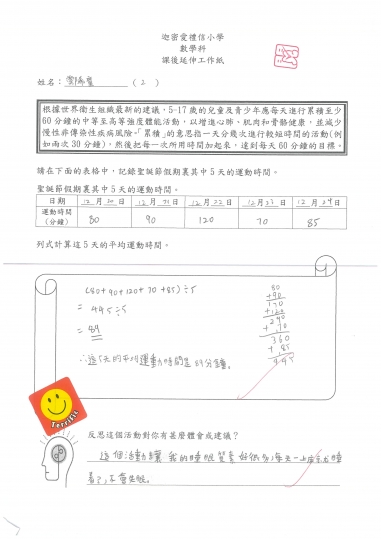 迦密愛禮信小學
數學科
課後延伸工作紙
姓名： ( 2 )
根據世界衛生組織最新的建議，5-17 歲的兒童及青少年應每天進行累積至少
60 分鐘的中等至高等強度體能活動，以增進心肺、肌肉和骨骼健康，並減少
慢性非傳染性疾病風險。「累積」的意思指一天分幾次進行較短時間的活動(例
如兩次 30 分鐘)，然後把每一次所用時間加起來，達到每天 60 分鐘的目標。
請在下面的表格中，記錄聖誕節假期裏其中 5 天的運動時間。
聖誕節假期裏其中 5 天的運動時間。
日期 12 月 20 日 12 月 21 日 12 月 22 日 12 月 23 日 12 月 24 日
運動時間 (分鐘) 80 90 120 70 85
列式計算這 5 天的平均運動時間。
(80+90+120+70+85)÷5
= 445÷5
= 89
∴這5天的平均運動時間是89分鐘。
80
+90
170
+120
290
+ 70
360
+ 85
445
Terrific
反思這個活動對你有甚麼體會或建議？
這個活動讓我的睡眠質素好很多，每天一上床就睡
着了，不會失眠。